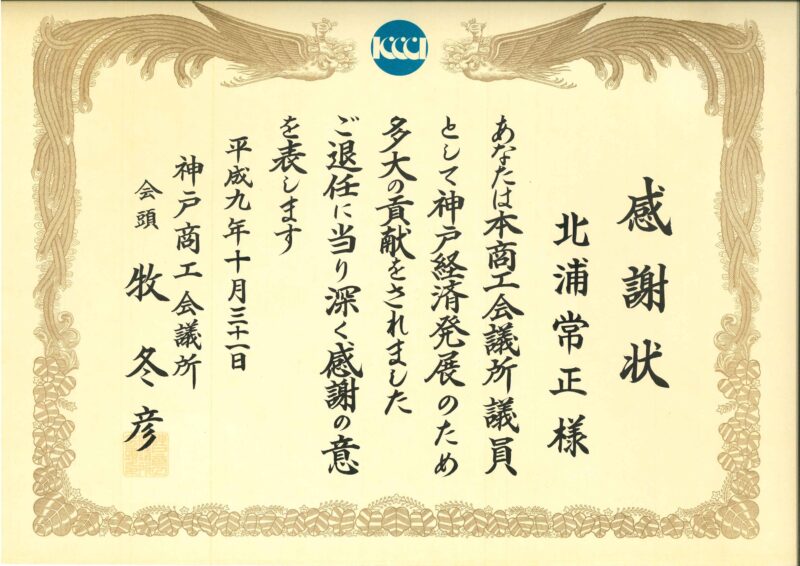 KCCI
感謝状
北浦常正様
あなたは本商工会議所議員
として神戸経済発展のため
多大の貢献をされました
ご退任に当り深く感謝の意
を表します
平成九年十月三十一日
神戸商工会議所
会頭 牧冬彦